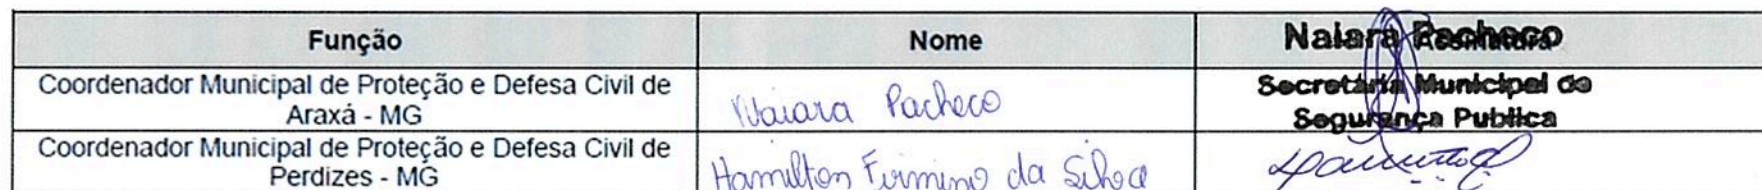 Função Nome Assinatura
Naiara Pacheco
Coordenador Municipal de Proteção e Defesa Civil de
Araxá - MG
Naiara Pacheco
Secretária Municipal de
Segurança Publica
Coordenador Municipal de Proteção e Defesa Civil de
Perdizes - MG
Hamilton Firmino da Silva